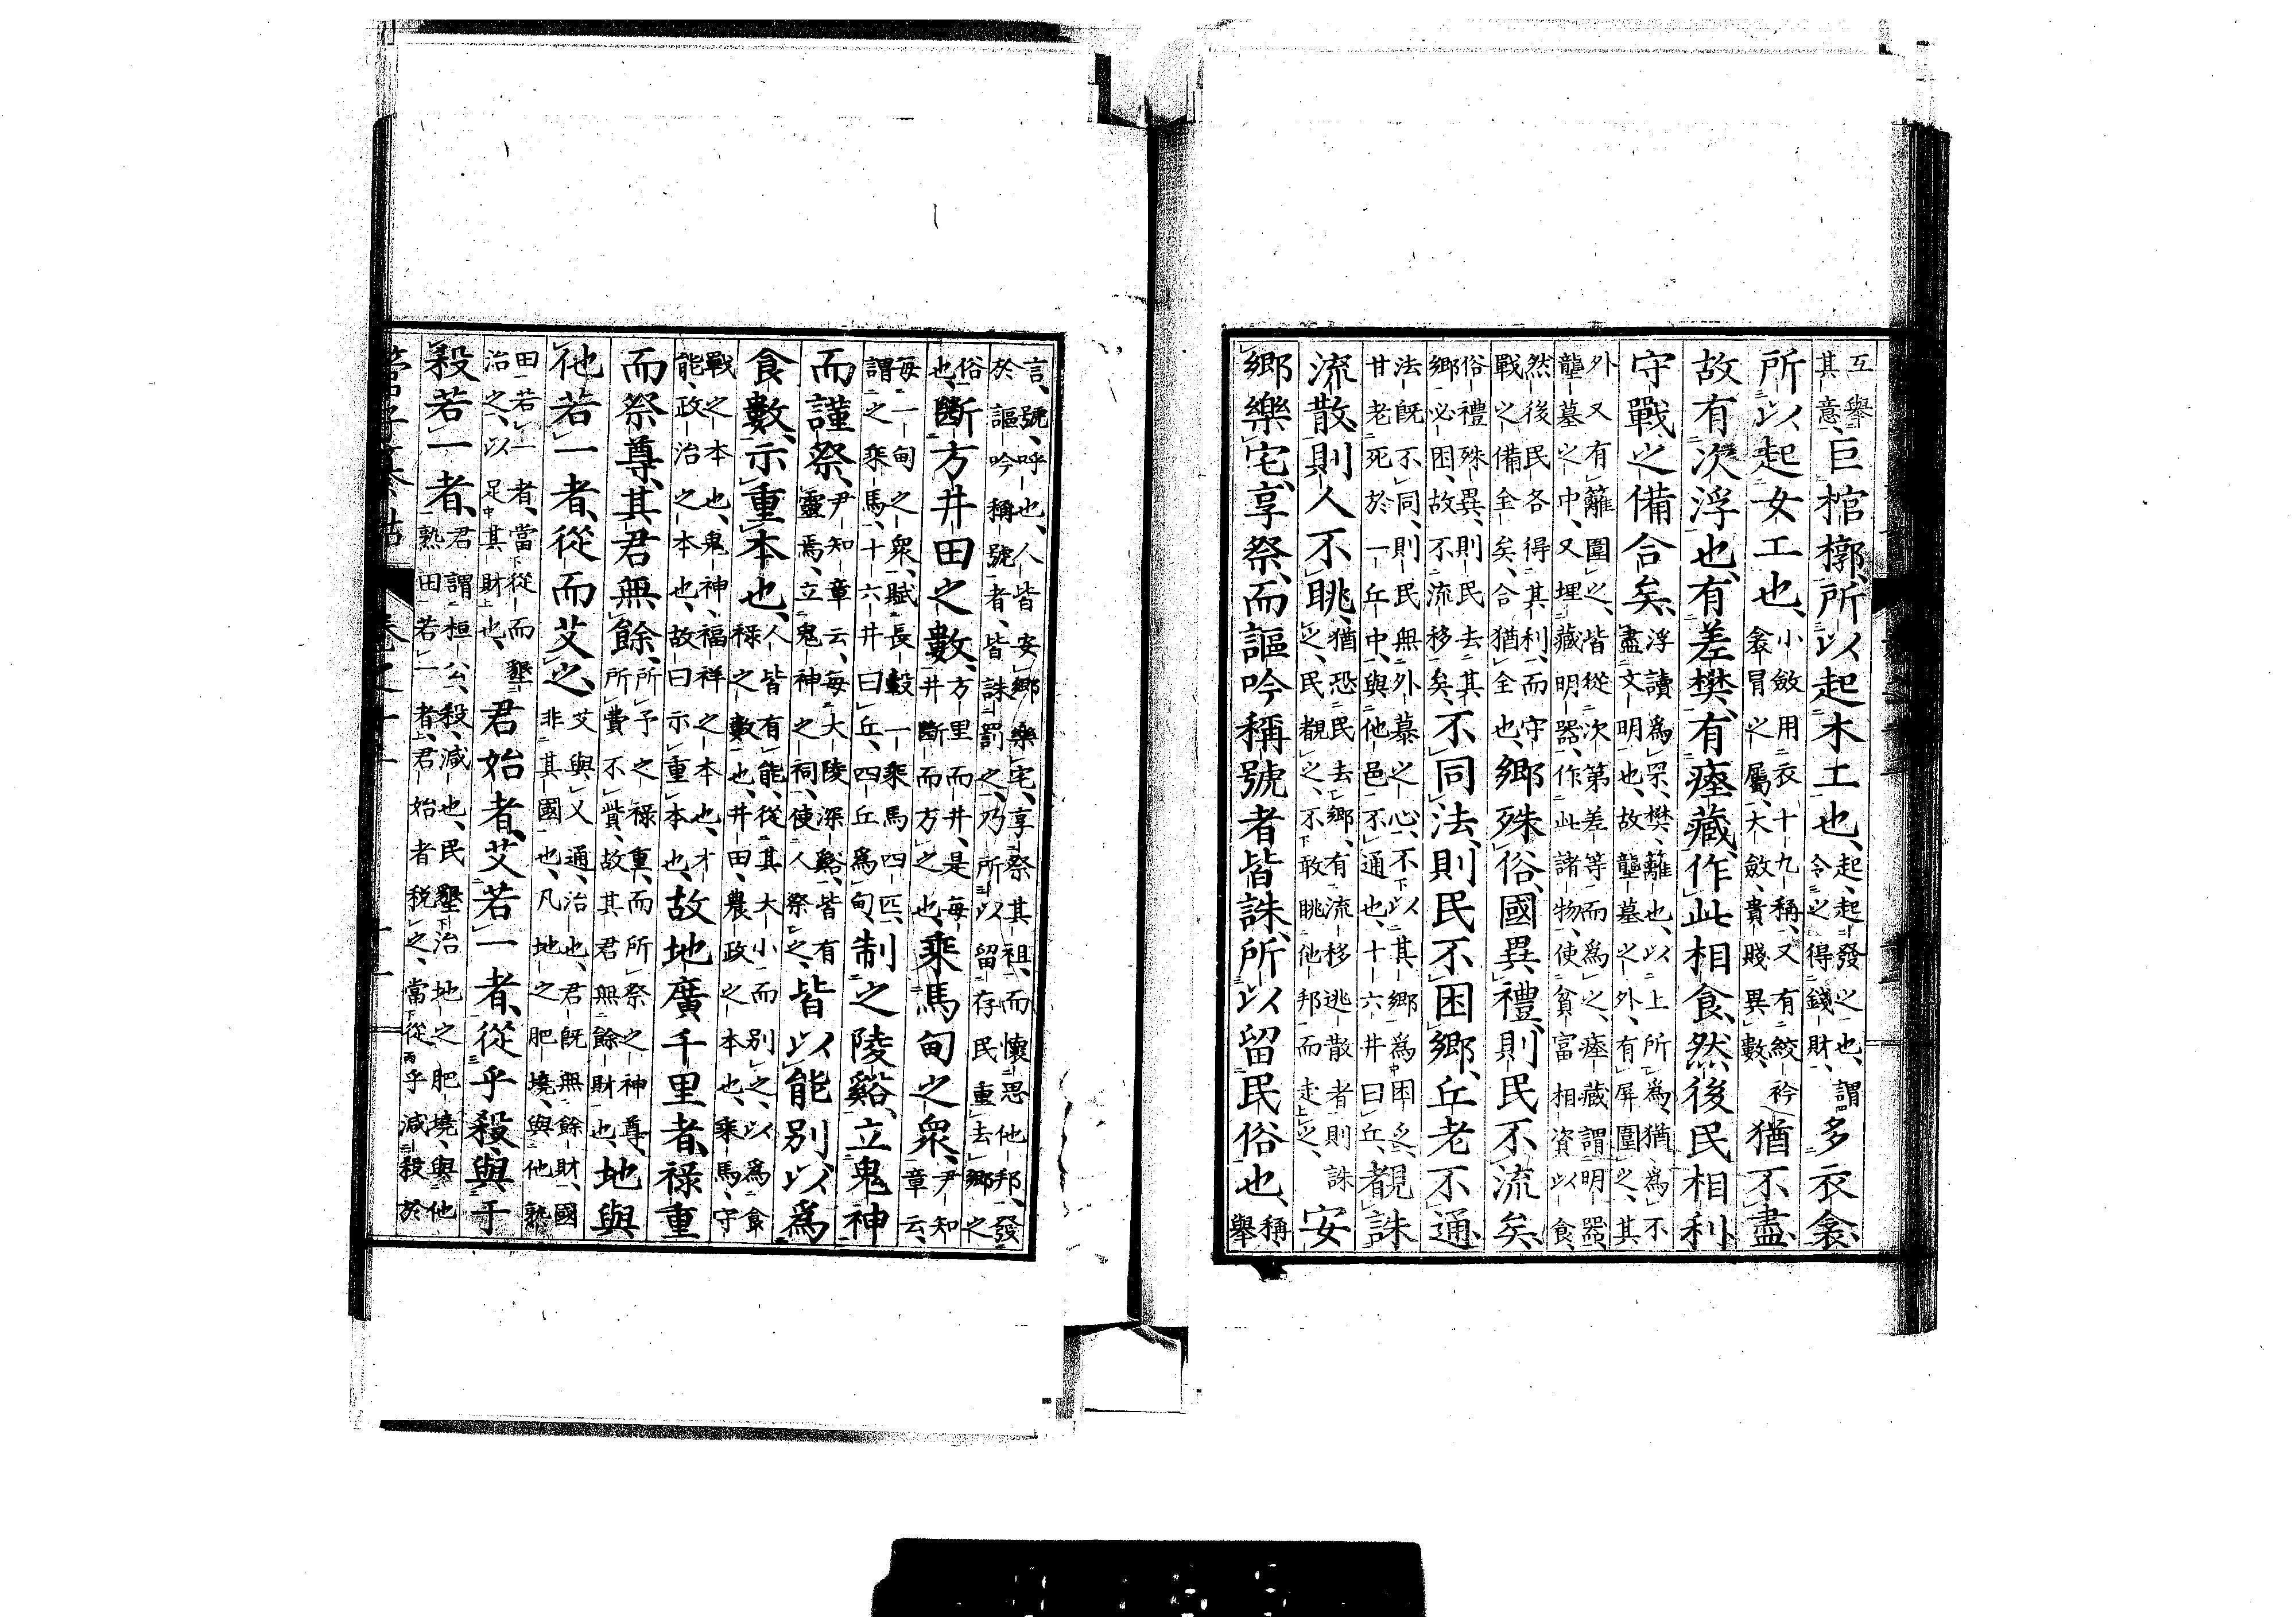 互舉其意、巨棺槨、所以起木工也、起、起發之也、謂令之得錢財、多衣衾、
所以起女工也、小斂用衣十九稱、又有絞衿衾冒之屬、大斂、貴賤異數、猶不盡、
故有次浮也、有差樊、有瘞藏、作此相食、然後民相利、
守戰之備合矣、浮讀爲罘、樊、籬也、以上所爲、猶爲不盡文明也、故壟墓之外、有屏圍之、其
外又有籬圍之、皆從次第差等而爲之、瘞藏謂明器、壟墓之中、又埋藏明器、作此諸物、使貧富相資以食、
然後民各得其利、而守戰之備全矣、合猶全也、鄉殊俗、國異禮、則民不流矣、
俗禮殊異、則民去其鄉必困、故不流移矣、不同法、則民不困、鄉丘老不通、
法既不同、則民無外慕之心、不以其鄉爲困矣、甘老死於一丘中、與他邑不通也、十六井曰丘、覩誅
流散、則人不眺、猶恐民去鄉、有流移逃散者則誅之、民覩之、不敢眺他邦而走之、安
鄉樂宅、享祭、而謳吟稱號者皆誅、所以留民俗也、稱、舉
言、號、呼也、人皆安鄉樂宅、享祭其祖、而懷思他邦、發於謳吟稱號者、皆誅罰之、乃所以留存民重去鄉之
俗也、斷方井田之數、方里而井、是每井斷而方之也、乘馬甸之衆、尹知章云、
每一甸之衆、賦長轂一乘馬四匹、謂之乘馬、十六井曰丘、四丘爲甸、制之陵谿、立鬼神
而謹祭、尹知章云、每大陵深谿、皆有靈焉、立鬼神之祠、使人祭之、皆以能別以爲
食數、示重本也、人皆有能、從其大小而別之、以爲食祿之數也、井田、農政之本也、乘馬、守
戰之本也、鬼神、福祥之本也、才能、政治之本也、故曰示重本也、故地廣千里者、祿重
而祭尊、其君無餘、所予之祿重、而所祭之神尊、所費不貲、故其君無餘財也、地與
他若一者、從而艾之、艾與乂通、治也、君既無餘財、國非其國也、凡地之肥墝、與他熟
田若一者、當從而墾治之、以足其財也、君始者、艾若一者、從乎殺、與于
殺若一者、君謂桓公、殺、減也、民墾治地之肥墝、與他熟田若一者、君始者稅之、當從乎減殺於